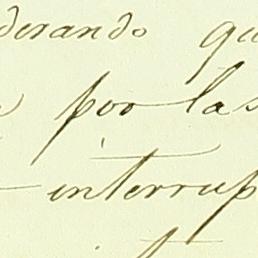 derando qu
por las
interrup